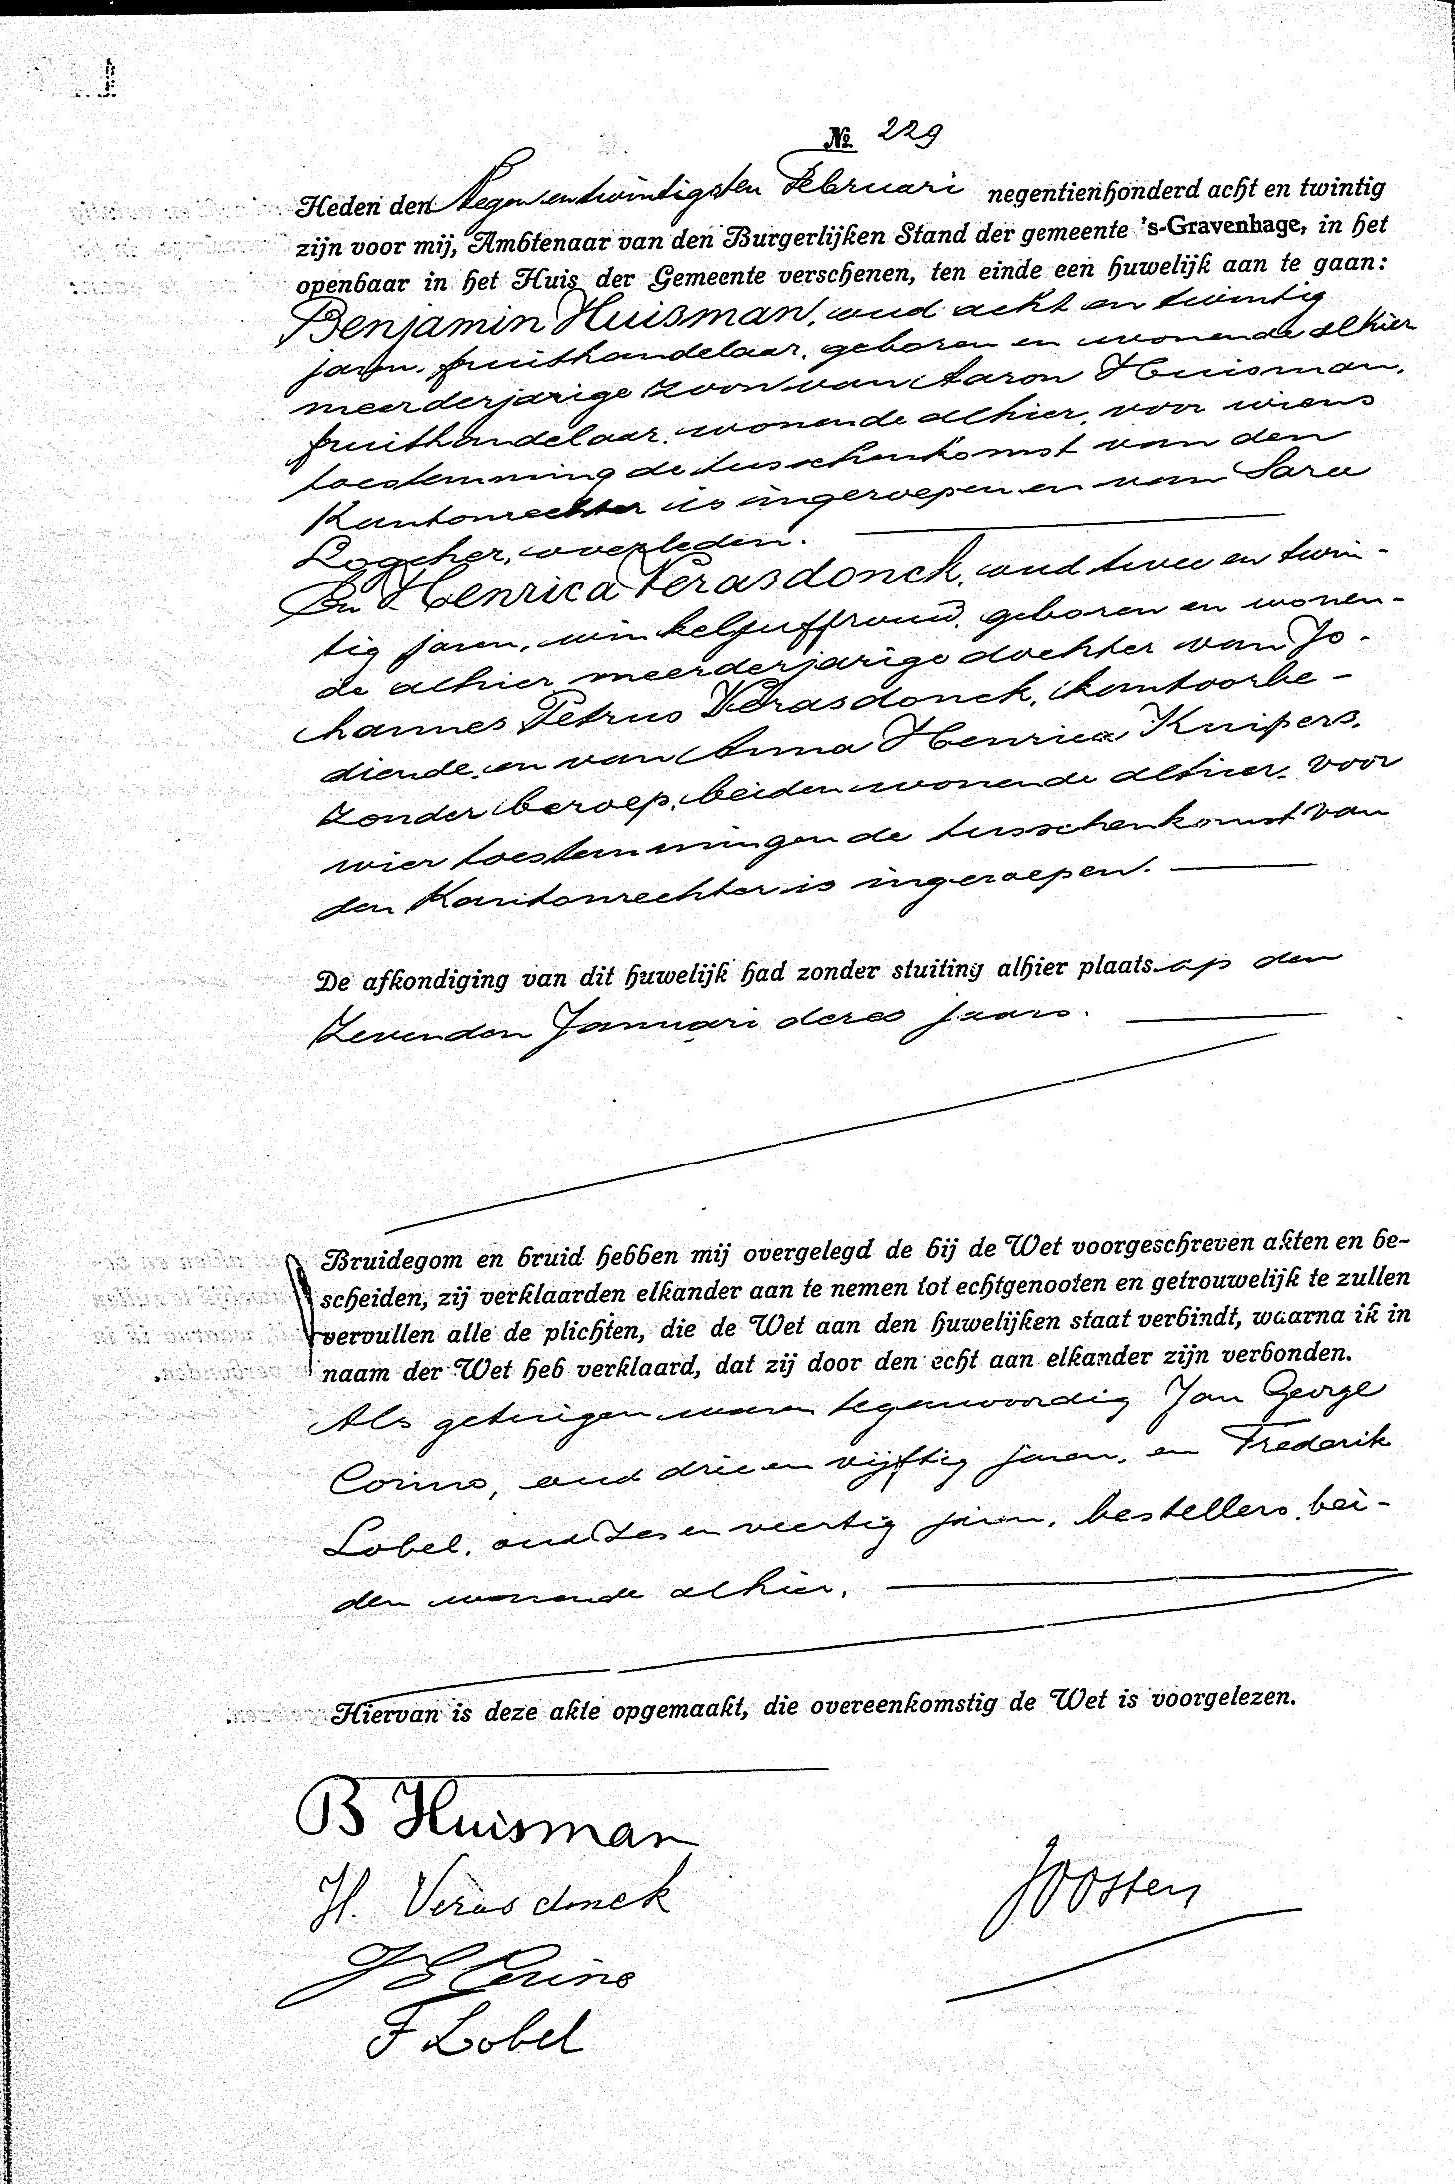 № 229
Heden den Negen en twintigsten Februari negentienhonderd acht en twintig
zijn voor mij, Ambtenaar van den Burgerlijken Stand der gemeente 's-Gravenhage, in het
openbaar in het Huis der Gemeente verschenen, ten einde een huwelijk aan te gaan:
Benjamin Huisman, oud acht en twintig
jaren, fruithandelaar, geboren en wonende alhier
meerderjarige zoon van Aaron Huisman,
fruithandelaar, wonende alhier, voor wiens
toestemming de tusschenkomst van den
Kantonrechter is ingeroepen en van Sara
Logcher, overleden.
En Henrica Verasdonck, oud twee en twin-
tig jaren, winkeljuffrouw, geboren en wonen-
de alhier meerderjarige dochter van Jo-
hannes Petrus Verasdonck, kantoorbe-
diende, en van Anna Henrica Kuipers,
zonder beroep, beiden wonende alhier, voor
wier toestemmingen de tusschenkomst van
den Kantonrechter is ingeroepen.
De afkondiging van dit huwelijk had zonder stuiting alhier plaats op den
Zevenden Januari dezes jaars.
Bruidegom en bruid hebben mij overgelegd de bij de Wet voorgeschreven akten en be-
scheiden, zij verklaarden elkander aan te nemen tot echtgenooten en getrouwelijk te zullen
vervullen alle de plichten, die de Wet aan den huwelijken staat verbindt, waarna ik in
naam der Wet heb verklaard, dat zij door den echt aan elkander zijn verbonden.
Als getuigen waren tegenwoordig Jan George
Corino, oud drie en vijftig jaren, en Frederik
Lobel, oud zes en veertig jaren, bestellers, bei-
den wonende alhier.
Hiervan is deze akte opgemaakt, die overeenkomstig de Wet is voorgelezen.
B Huisman
H. Verasdonck
Joosten
J G Corino
F Lobel